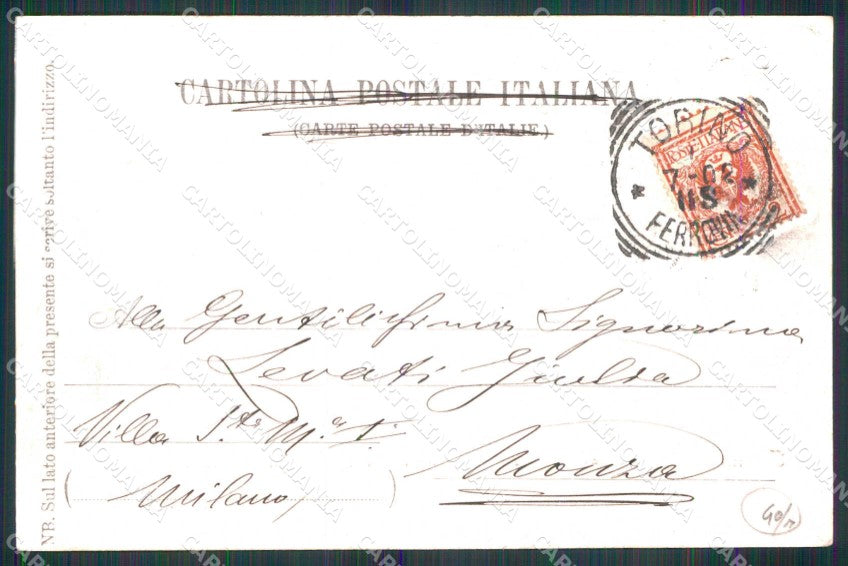 CARTOLINA POSTALE ITALIANA
(CARTE POSTALE D'ITALIE)
TORINO
7-02
11S
FERROVIA
POSTE ITALIANE
2
NB. Sul lato anteriore della presente si scrive soltanto l'indirizzo.
Alla Gentilissima Signorina
Levati Giulia
Villa S.ta M.a
Monza
(Milano)
40/
CARTOLINOMANIA